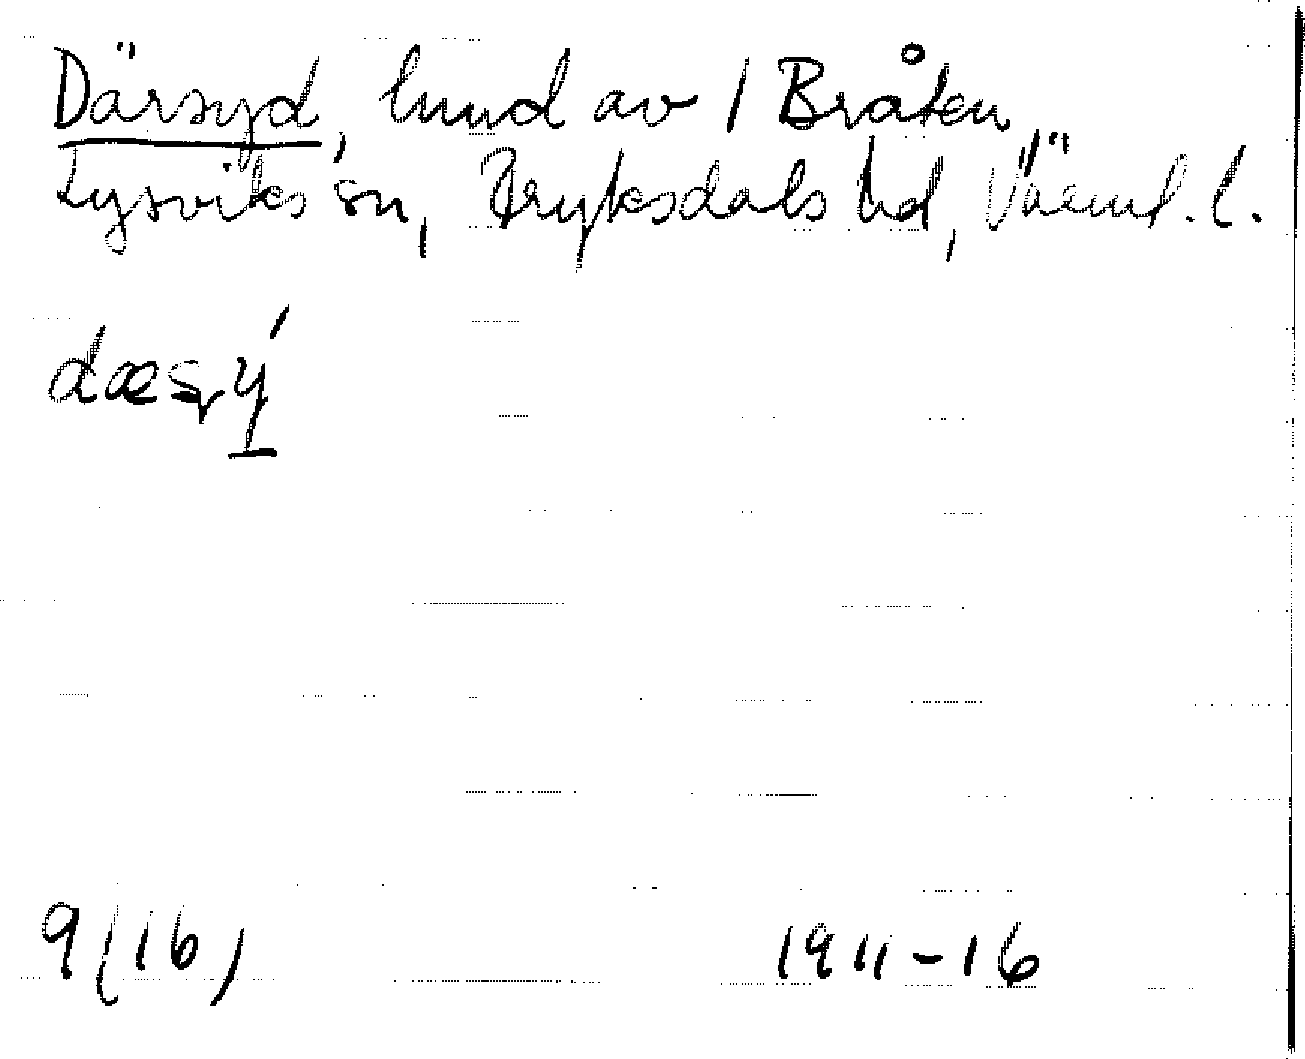 Därsyd, hmd av 1 Bråten,
Lysviks sn, Fryksdals hd, Värml. l.
dæsý
9(16) 1911-16